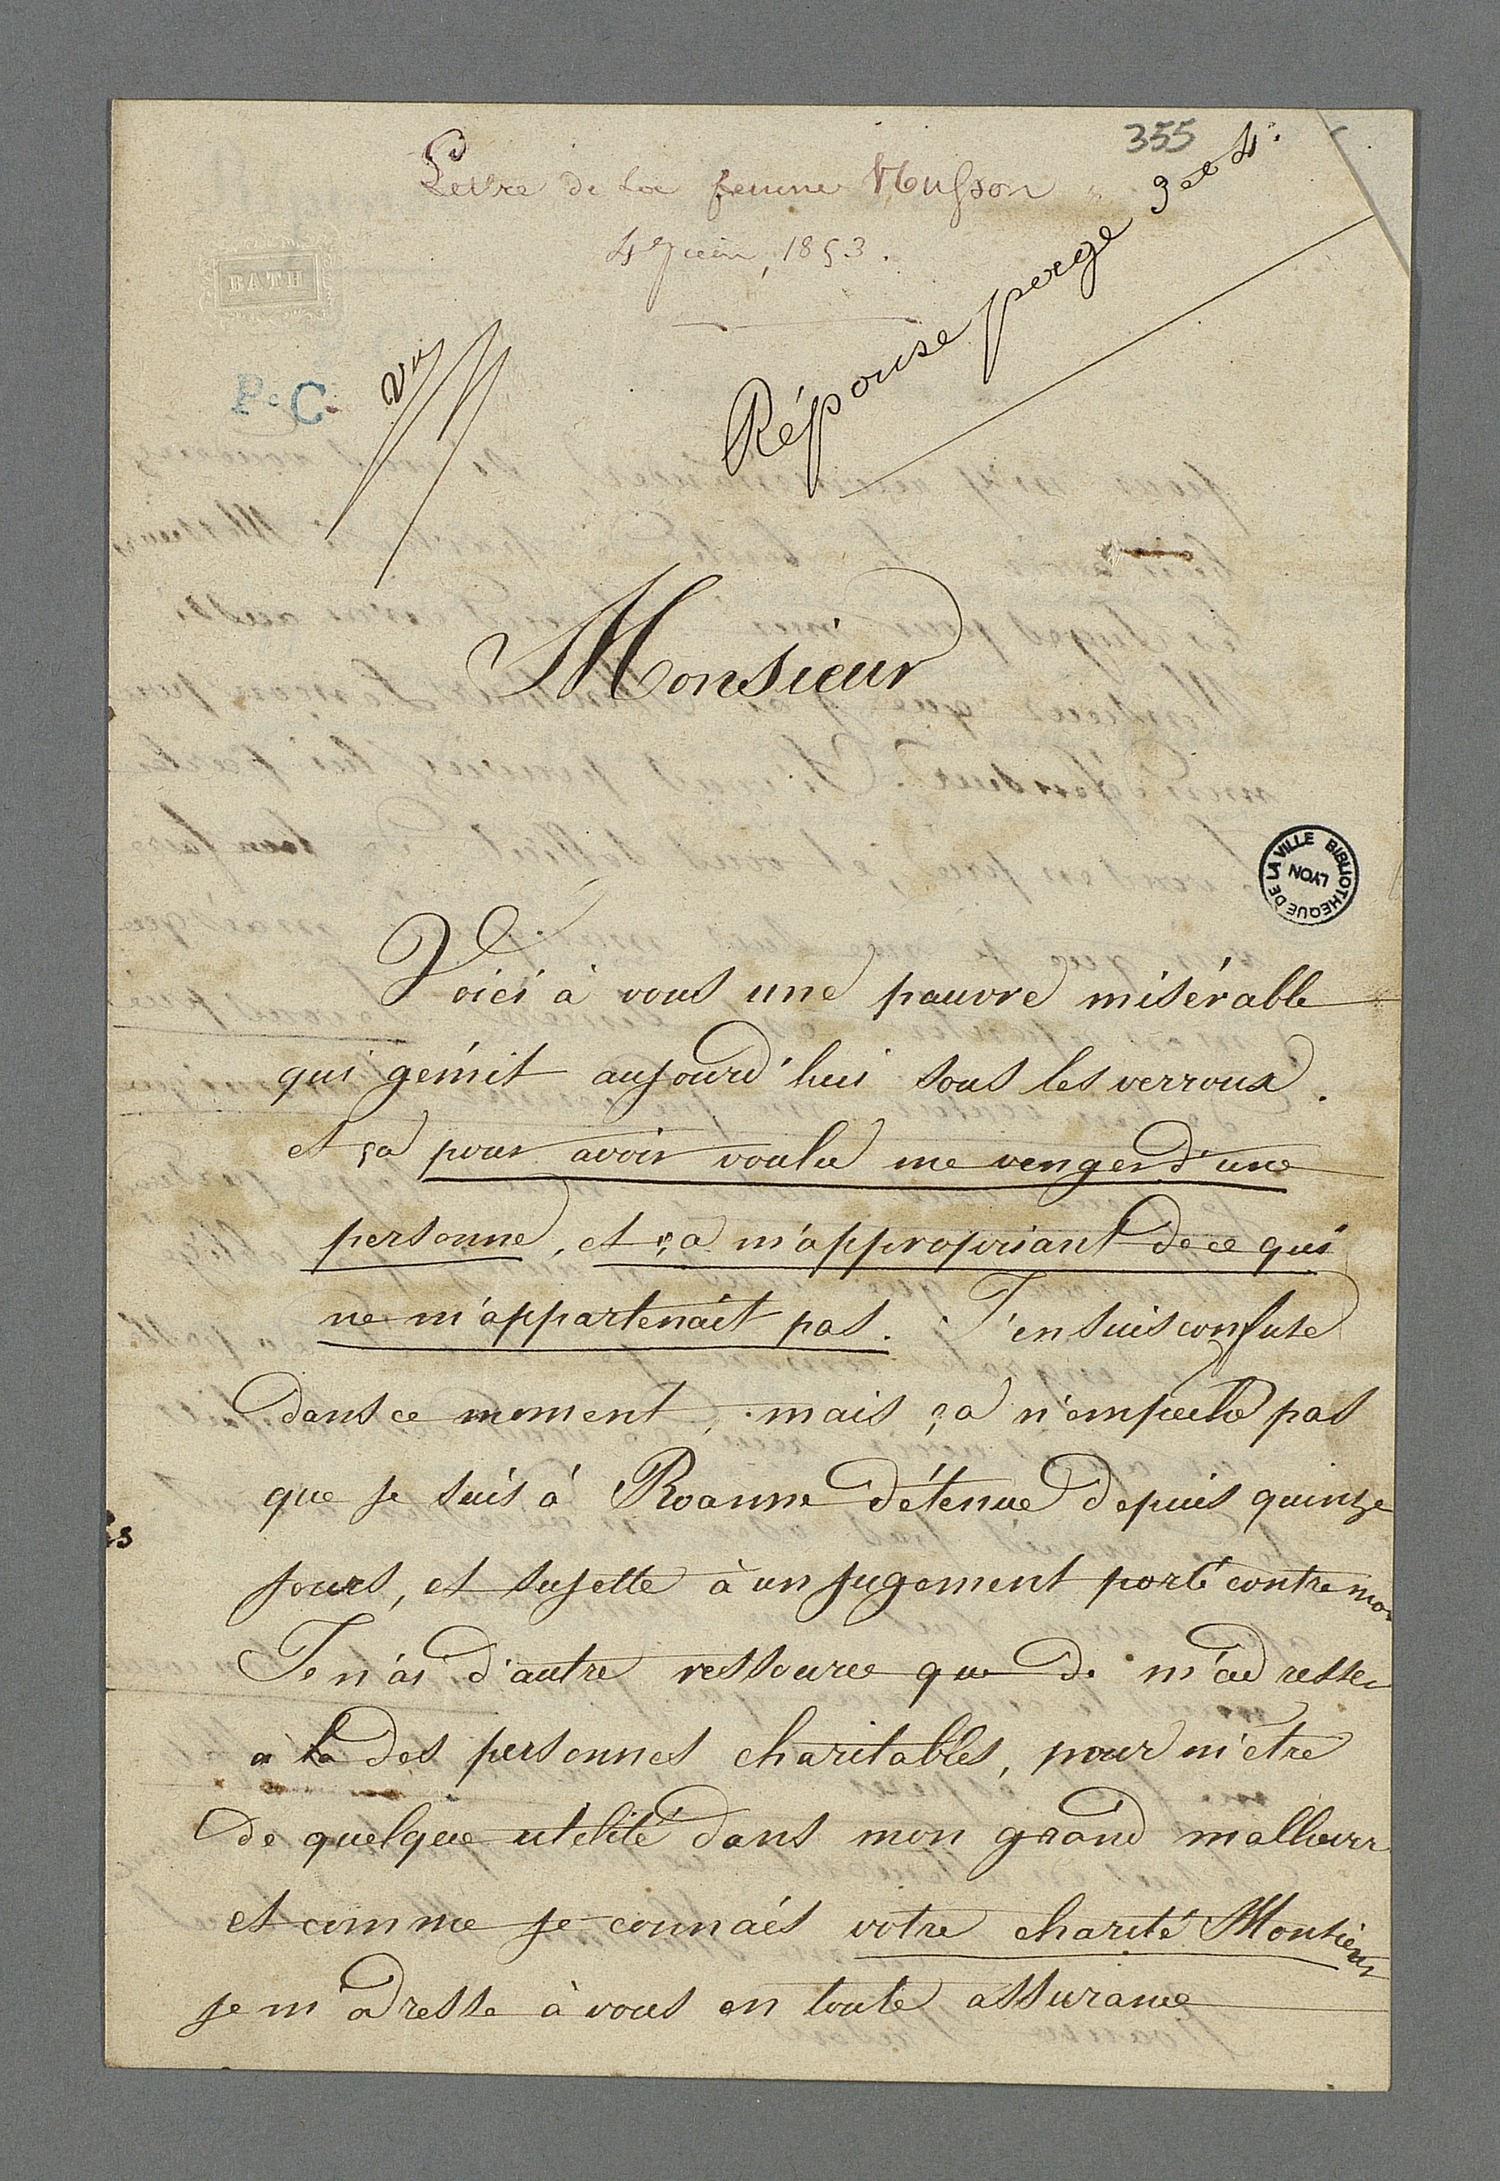 355
Lettre de la femme Musson
4 Juin, 1853.
Réponse page 3 et 4.
BATH
P.C.
Vu
Monsieur
BIBLIOTHEQUE DE LA VILLE
LYON
Voici à vous une pauvre misérable
qui gémit aujourd'hui sous les verroux.
et ça pour avoir voulu me venger d'une
personne, et ça m'appropriant de ce qui
ne m'appartenait pas. J'en suis confuse
dans ce moment, mais ça n'empeche pas
que je suis à Roanne détenue depuis quinze
jours, et sujette à un jugement porté contre moi
Je n'ai d'autre ressource que de m'adresser
a la des personnes charitables, pour m'etre
de quelque utilité dans mon grand malheur
et comme je connais votre charité Monsieur
je m'adresse à vous en toute assurance